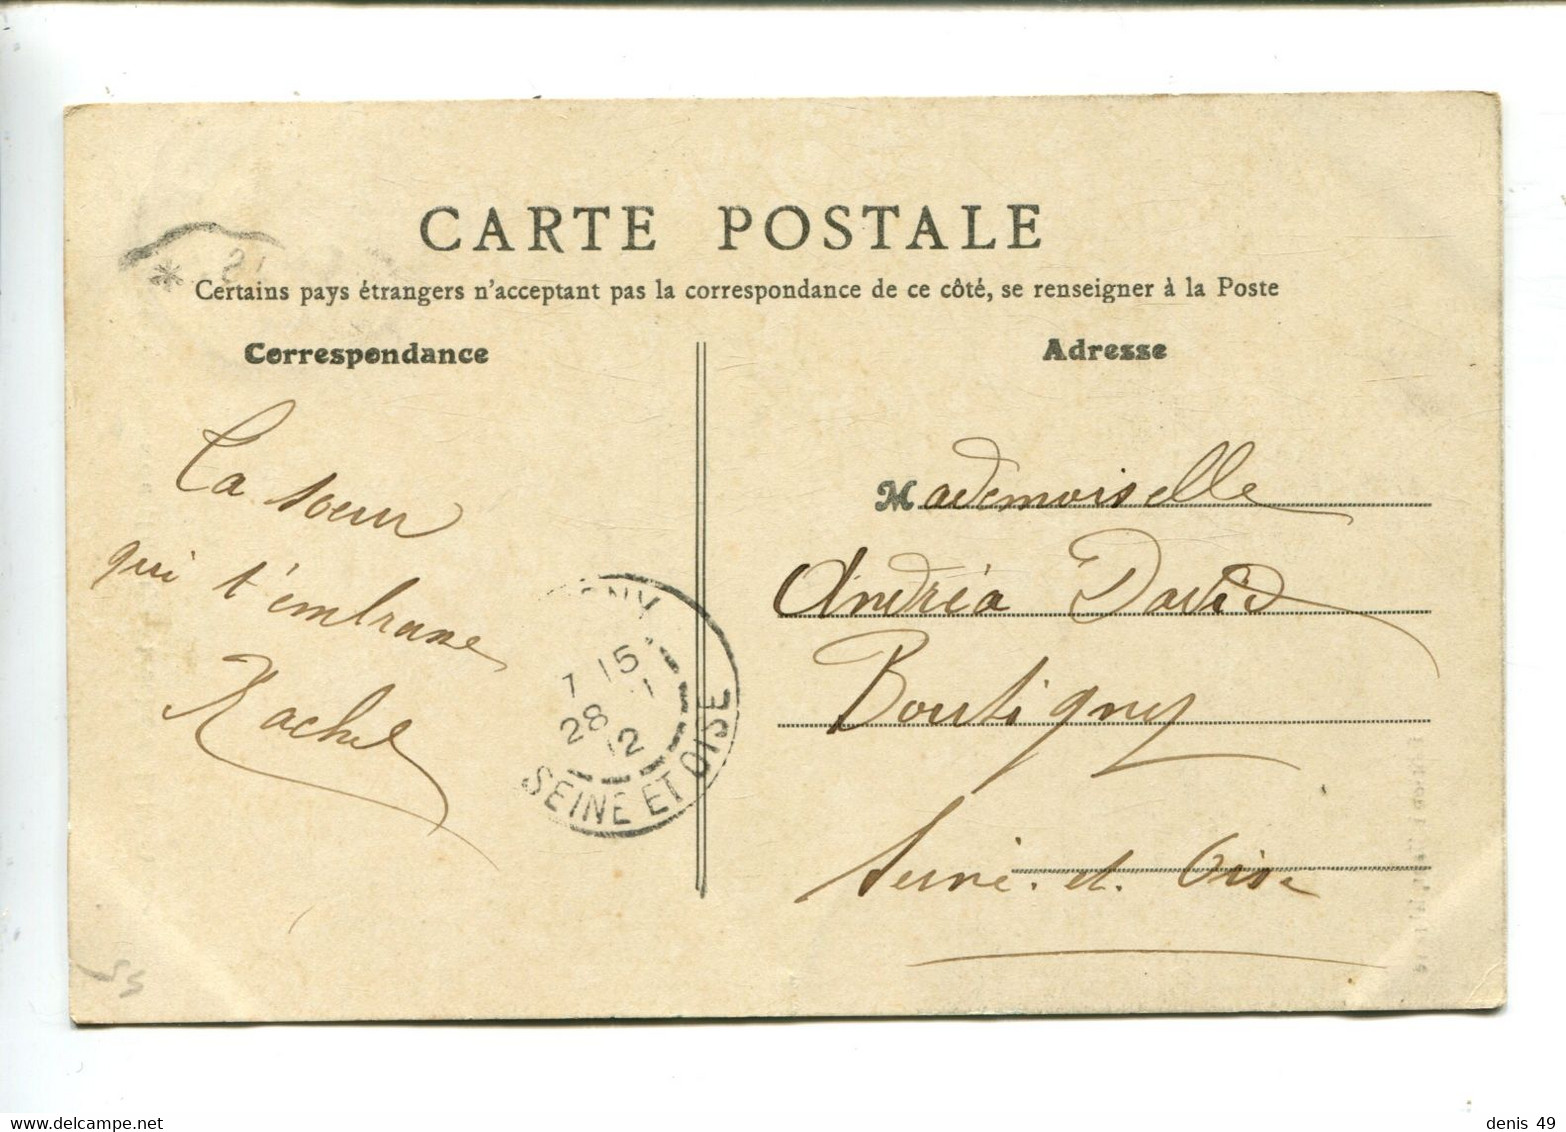 CARTE POSTALE
Certains pays étrangers n'acceptant pas la correspondance de ce côté, se renseigner à la Poste
Correspondance
Ta soeur
qui t'embrasse
Rachel
Adresse
Mademoiselle
Andréa David
Boutigny
Seine-et-Oise
GNY
7 15
28
12
SEINE ET OISE
55
delcampe.net
denis 49